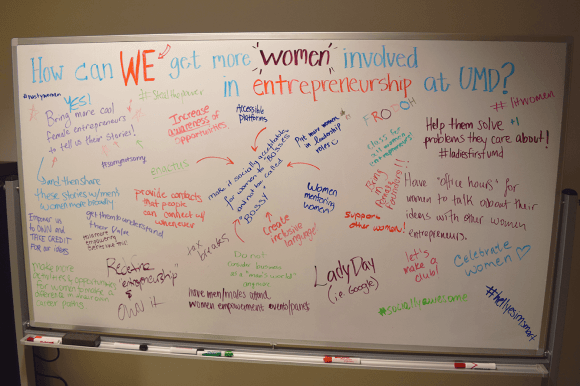 How can WE get more "women" involved
in entrepreneurship at UMD?
#nastywomen
YES!
Bring more cool
female entrepreneurs
to tell us their stories!
and then share
these stories w/ men &
women more broadly
Empower us
to OWN and
TAKE CREDIT
FOR our ideas
get them to understand
Increase
awareness of
opportunities
enactus
provide contacts
that people
can connect w/
whenever
Accessible
platforms
Put more women
in leadership
make it socially acceptable
for women to be BOSSES
and not be called
BOSSY
Women
mentoring
women!
Create
inclusive
language
tax
breaks
Do not
consider business
as a "man's world"
anymore
Redefine
"entrepreneurship"
&
OWN it
have men/males attend
women empowerment events/panels
Lady Day
(i.e. Google)
FRO-YO
Class for
women
Support
other women!
let's
make a
club!
#litwomen
Help them solve +1
problems they care about!
#ladiesfirstumd
Have "office hours" for
women to talk about their
ideas with other women
entrepreneurs.
Celebrate
women ♡
#sociallyawesome
#hellyesimsmart